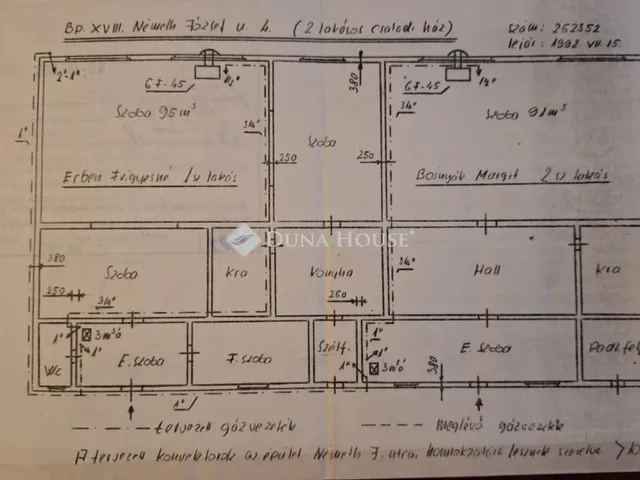 Bp. XVIII. Németh József u 4. (2 lakásos családi ház)
szám: 252352
lejár: 1992 VII. 15.
2"-1"
67-45
1½"
380
67-45
1½"
Szoba 95 m³
3/4"
Szoba
3/4"
Szoba 91 m³
1"
250
250
Erben Frigyesné 1 sz lakás
Bosnyák Margit 2 sz lakás
DUNA HOUSE
380
Szoba
Kra
Konyha
3/4"
Hall
Kra
250
3/4"
250
1"
3 m³ó
1"
Wc
E. szoba
F. szoba
Szélf.
1"
1"
1"
3 m³ó
E. szoba
380
1"
tervezett gázvezeték
meglévő gázvezeték
A tervezett konvektorok az épület Németh J. utcai homlokzatára lesznek szerelve